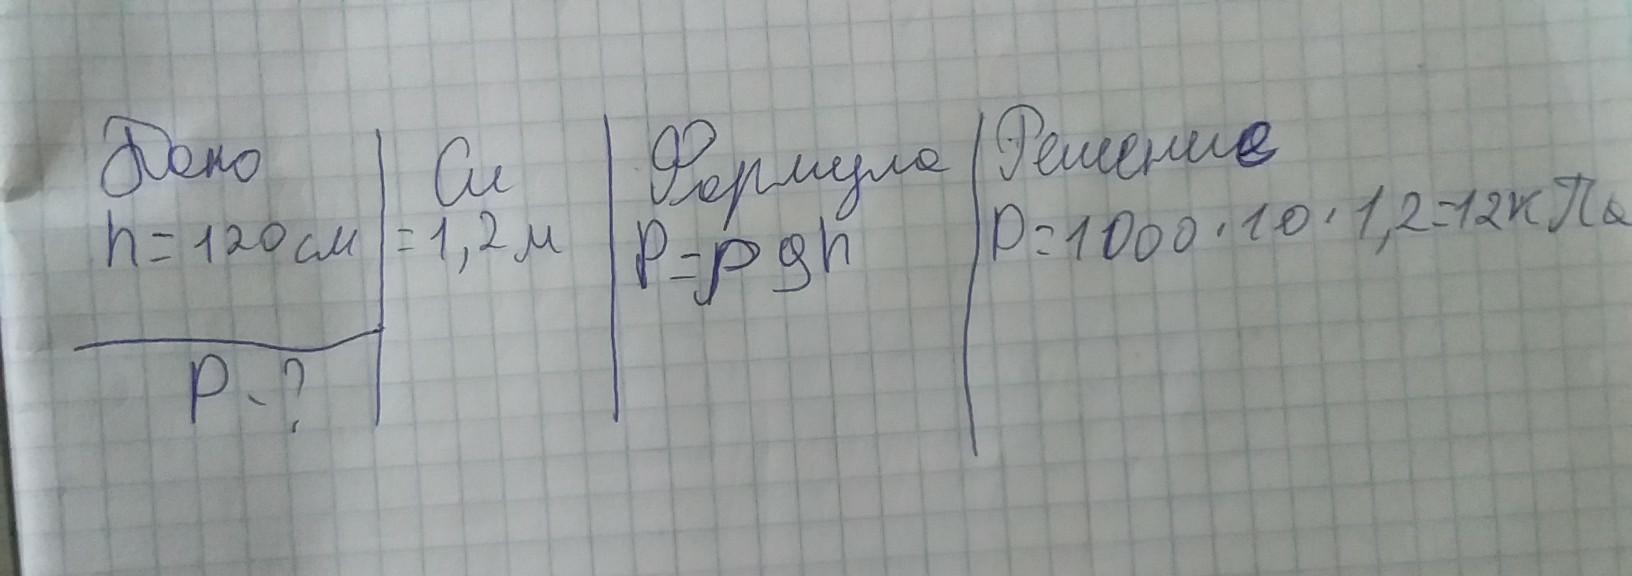 Дано
h=120см
P-?
Си
=1,2м
Формула
P=ρgh
Решение
P=1000·10·1,2=12кПа